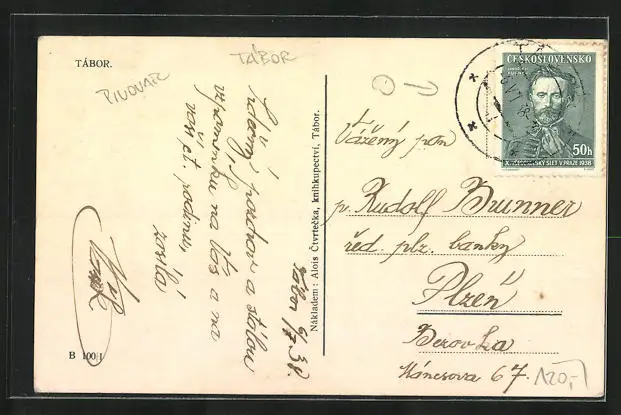 TÁBOR.
TÁBOR
PIVOVAR
Tábor 6/7 38.
Srdečný pozdrav a stálou
vzpomínku na Vás a na
vaši ct. rodinu,
zasílá
B 100/1
Nákladem: Alois Čtvrtečka, knihkupectví, Tábor.
ČESKOSLOVENSKO
50h
X. VŠESOKOLSKÝ SLET V PRAZE 1938
Vážený pan
p. Rudolf Brunner
řed. plz. banky
Plzeň
Mánesova 67.
120,-